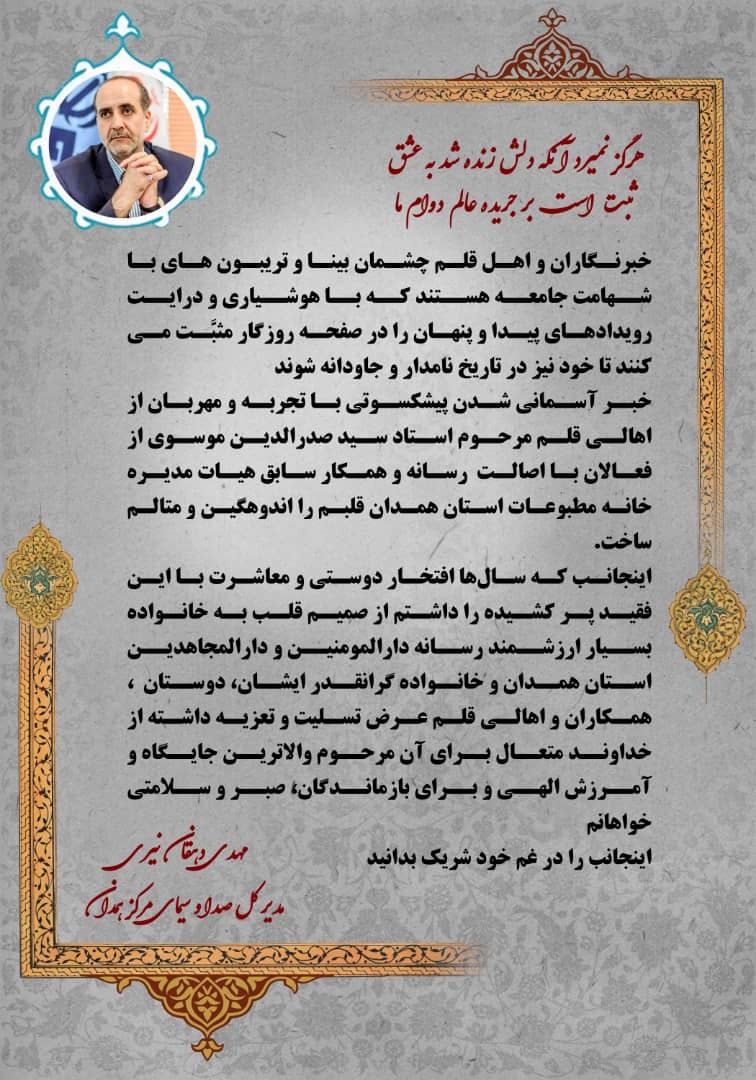 هرگز نمیرد آنکه دلش زنده شد به عشق
ثبت است بر جریده عالم دوام ما
خبرنگاران و اهل قلم چشمان بینا و تریبون های با
شهامت جامعه هستند که با هوشیاری و درایت
رویدادهای پیدا و پنهان را در صفحه روزگار مثبَّت می
کنند تا خود نیز در تاریخ نامدار و جاودانه شوند
خبر آسمانی شدن پیشکسوتی با تجربه و مهربان از
اهالی قلم مرحوم استاد سید صدرالدین موسوی از
فعالان با اصالت رسانه و همکار سابق هیات مدیره
خانه مطبوعات استان همدان قلبم را اندوهگین و متالم
ساخت.
اینجانب که سال‌ها افتخار دوستی و معاشرت با این
فقید پر کشیده را داشتم از صمیم قلب به خانواده
بسیار ارزشمند رسانه دارالمومنین و دارالمجاهدین
استان همدان و خانواده گرانقدر ایشان، دوستان ،
همکاران و اهالی قلم عرض تسلیت و تعزیه داشته از
خداوند متعال برای آن مرحوم والاترین جایگاه و
آمرزش الهی و برای بازماندگان، صبر و سلامتی
خواهانم
اینجانب را در غم خود شریک بدانید
مهدی دهقان نیری
مدیر کل صدا و سیمای مرکز همدان